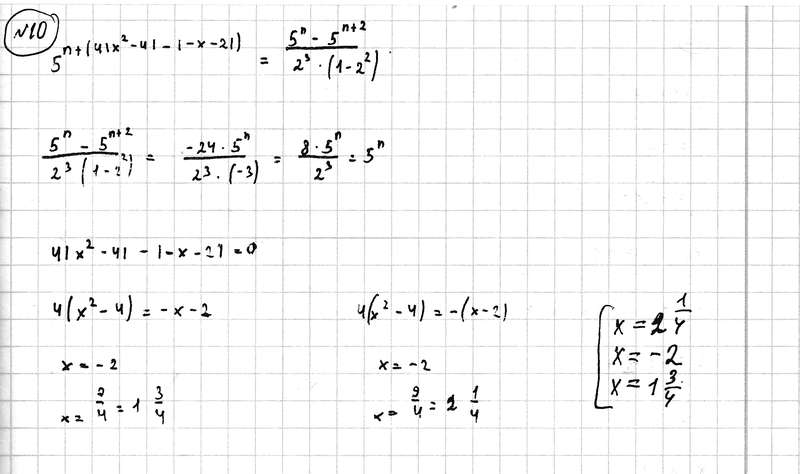 №10
5^{n+(4|x²-4|-|-x-2|)} = \frac{5^n - 5^{n+2}}{2^3 · (1-2^2)}
\frac{5^n - 5^{n+2}}{2^3 (1-2^2)} = \frac{-24·5^n}{2^3·(-3)} = \frac{8·5^n}{2^3} = 5^n
4|x²-4|-|-x-2|=0
4(x²-4)=-x-2
4(x²-4)=-(x-2)
x=-2
x=-2
x=\frac{7}{4}=1\frac{3}{4}
x=\frac{9}{4}=2\frac{1}{4}
x=2\frac{1}{4}
x=-2
x=1\frac{3}{4}